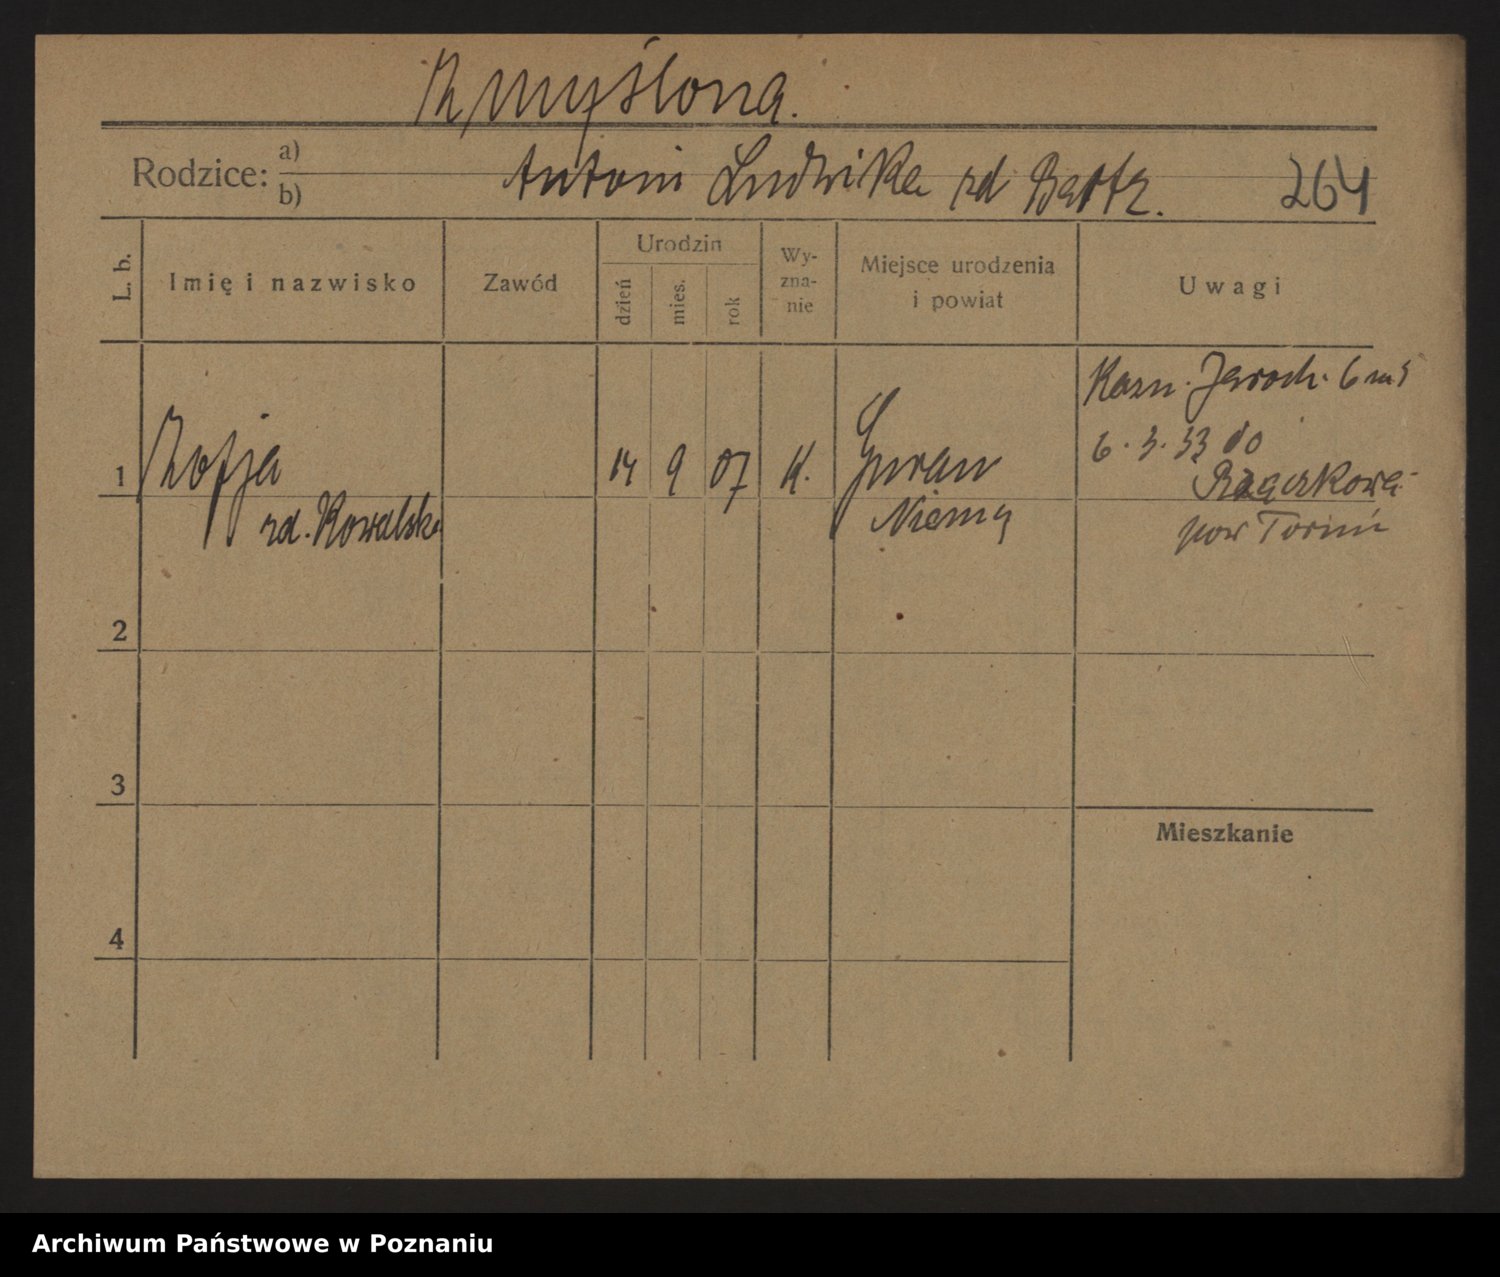 Zmyślona.
Rodzice: a) b) Antoni Ludwika zd Bartz. 264
L. b.
Imię i nazwisko
Zawód
Urodzin
dzień
mies.
rok
Wy-
zna-
nie
Miejsce urodzenia
i powiat
Uwagi
1 Zofja
zd. Kowalska
14 9 07 K.
Niemcy
Kazn. Jaroch. 6 m 5
6. 3. 33 do
Rzączkowa
pow Toruń
2
3
4
Mieszkanie
Archiwum Państwowe w Poznaniu